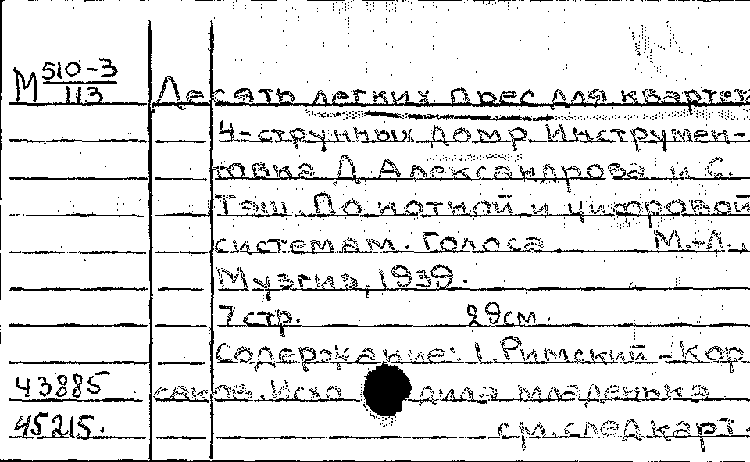 М 510-3/113 Десять легких пьес для квартет
4-струнных домр. Инструмен-
товка А. Александрова и С.
Тэш. По нотной и цифровой
системам. Голоса. М.-Л.,
Музгиз, 1939.
7 стр. 29см.
Содержание: 1. Римский-Кор
43885 саков. Исхо дила младенька
45215. см. след карт.